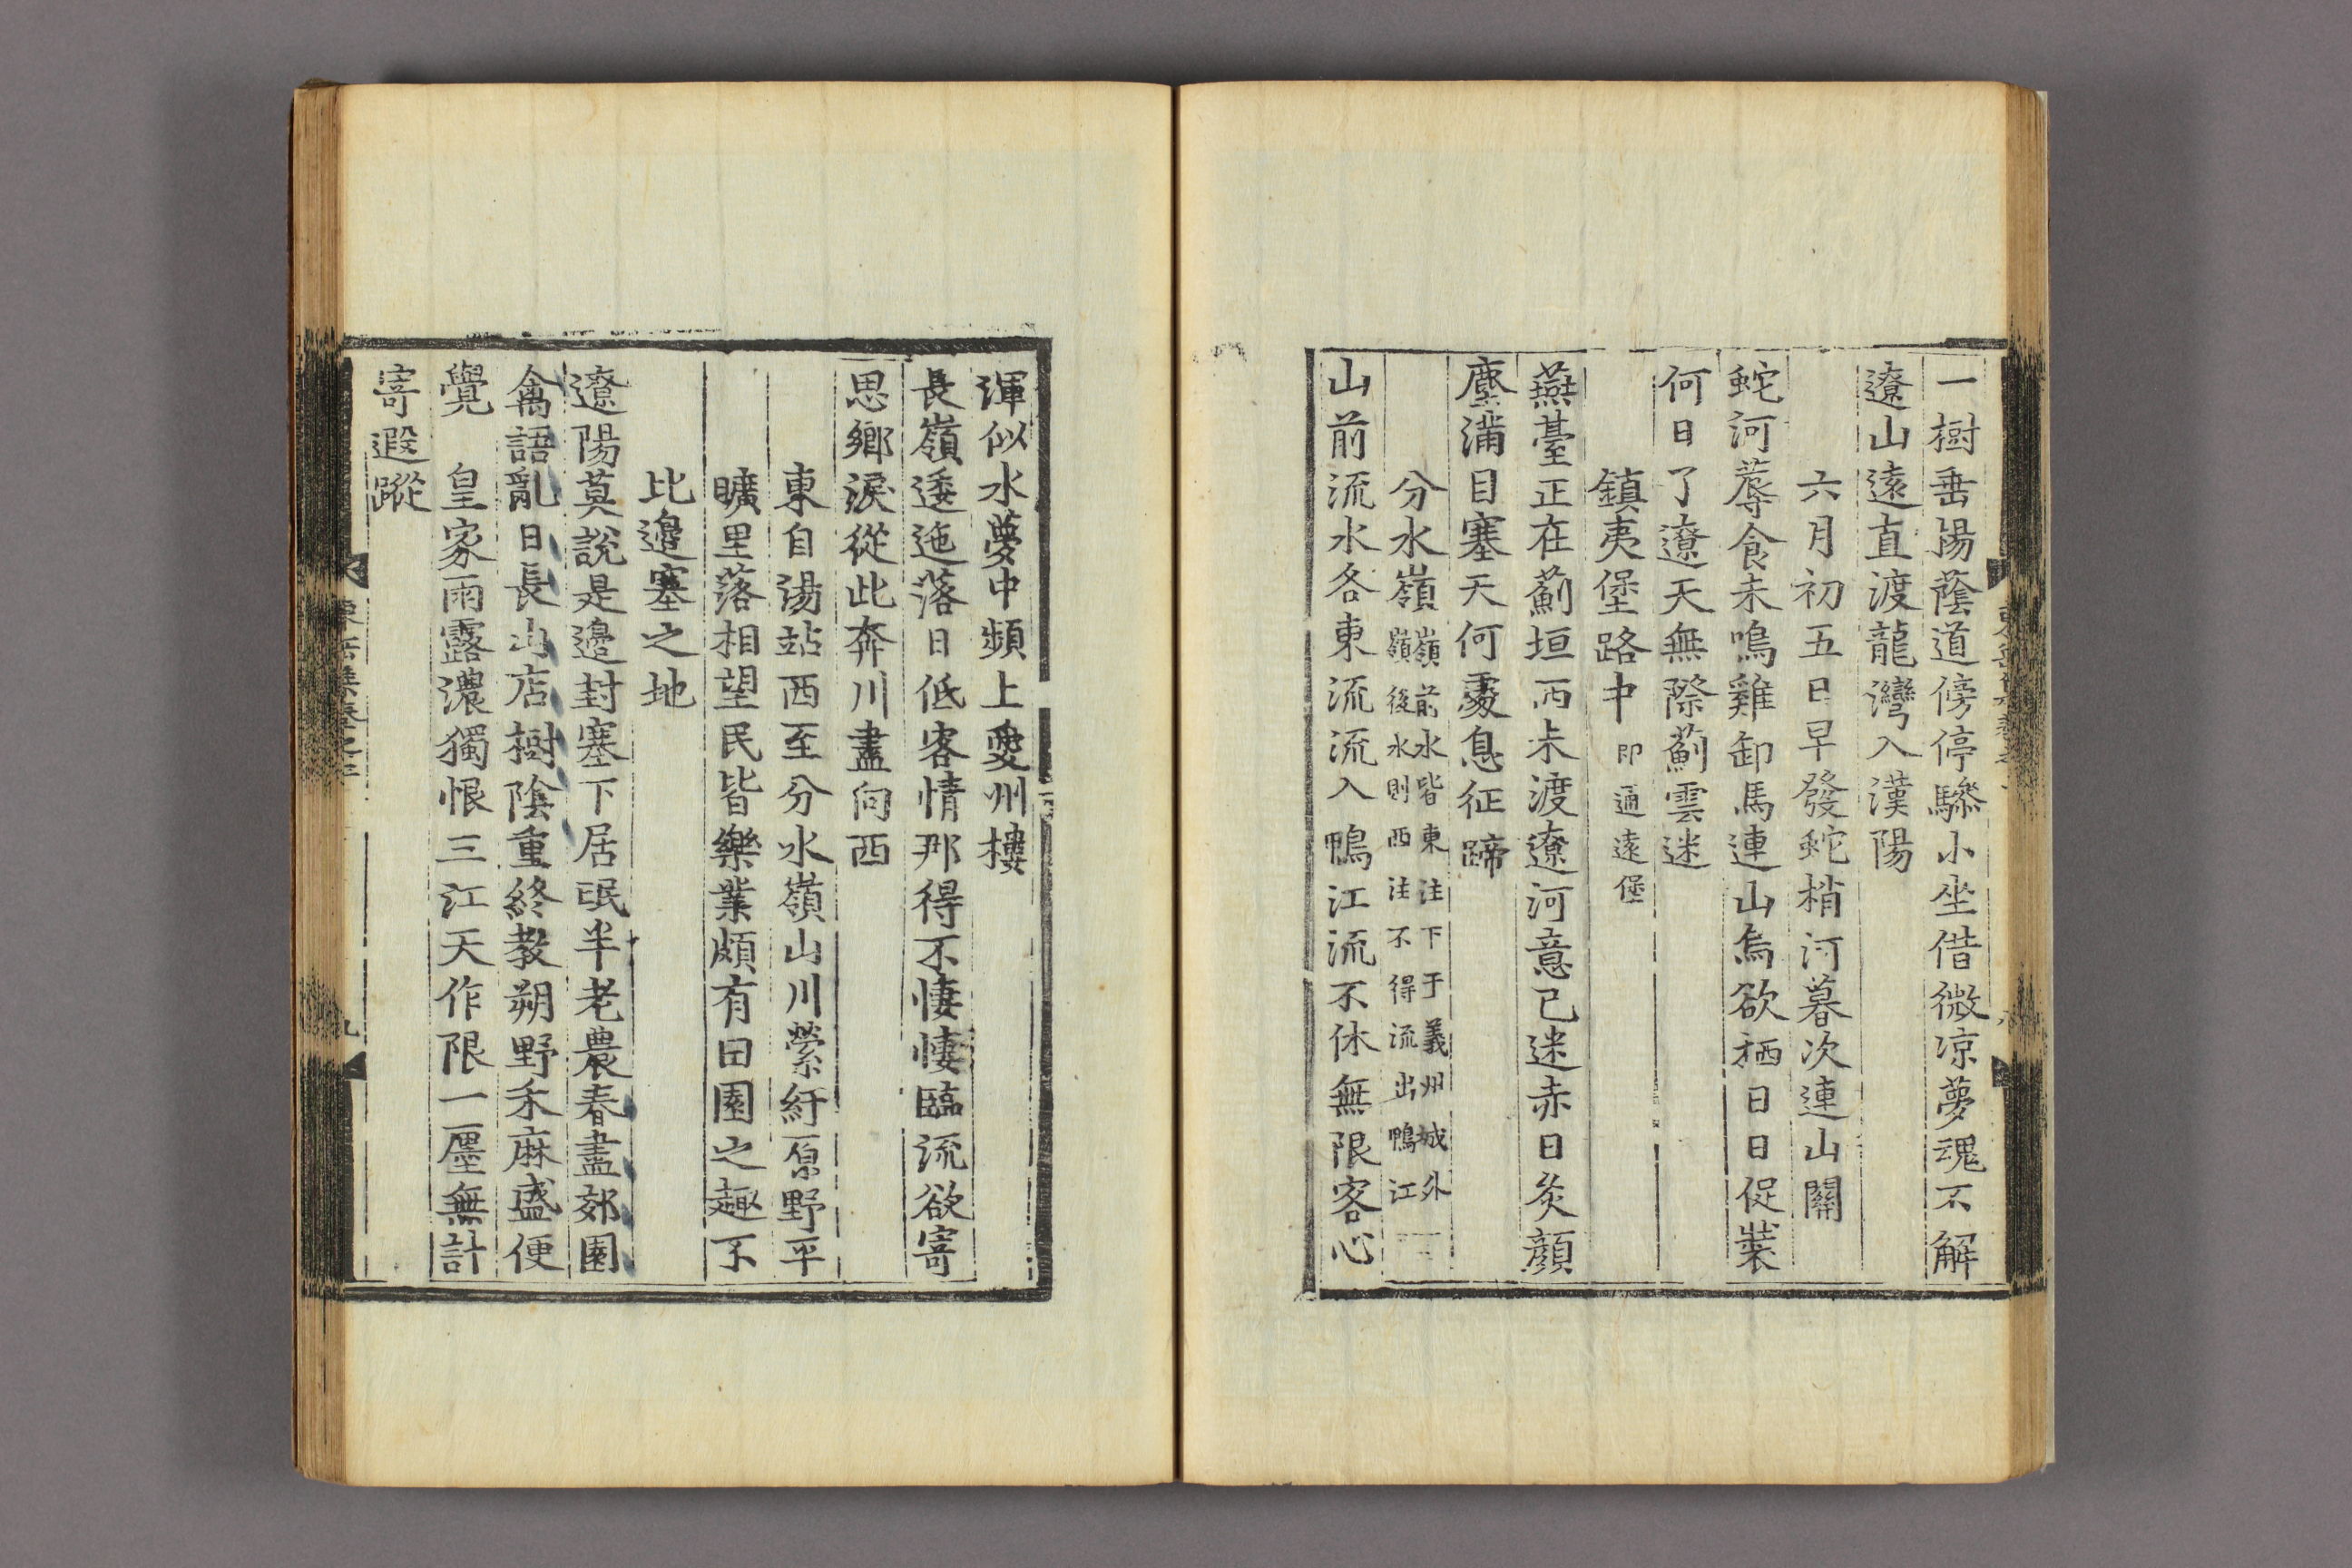 一樹垂楊蔭道傍停驂小坐借微凉夢魂不解
遼山遠直渡龍灣入漢陽
六月初五日早發蛇梢河暮次連山關
蛇河蓐食未鳴雞卸馬連山烏欲栖日日促裝
何日了遼天無際薊雲迷
鎮夷堡路中即通遠堡
燕臺正在薊垣西未渡遼河意已迷赤日炙顔
塵滿目塞天何處息征蹄
分水嶺嶺前水皆東注下于義州城外
嶺後水則西注不得流出鴨江
山前流水各東流流入鴨江流不休無限客心
渾似水夢中頻上愛州樓
長嶺逶迤落日低客情那得不悽悽臨流欲寄
思鄉淚從此奔川盡向西
東自湯站西至分水嶺山川縈紆原野平
曠里落相望民皆樂業頗有田園之趣不
比邊塞之地
遼陽莫說是邊封塞下居氓半老農春盡郊園
禽語亂日長山店樹陰重終教朔野禾麻盛便
覺 皇家雨露濃獨恨三江天作限一廛無計
寄遐蹤
九